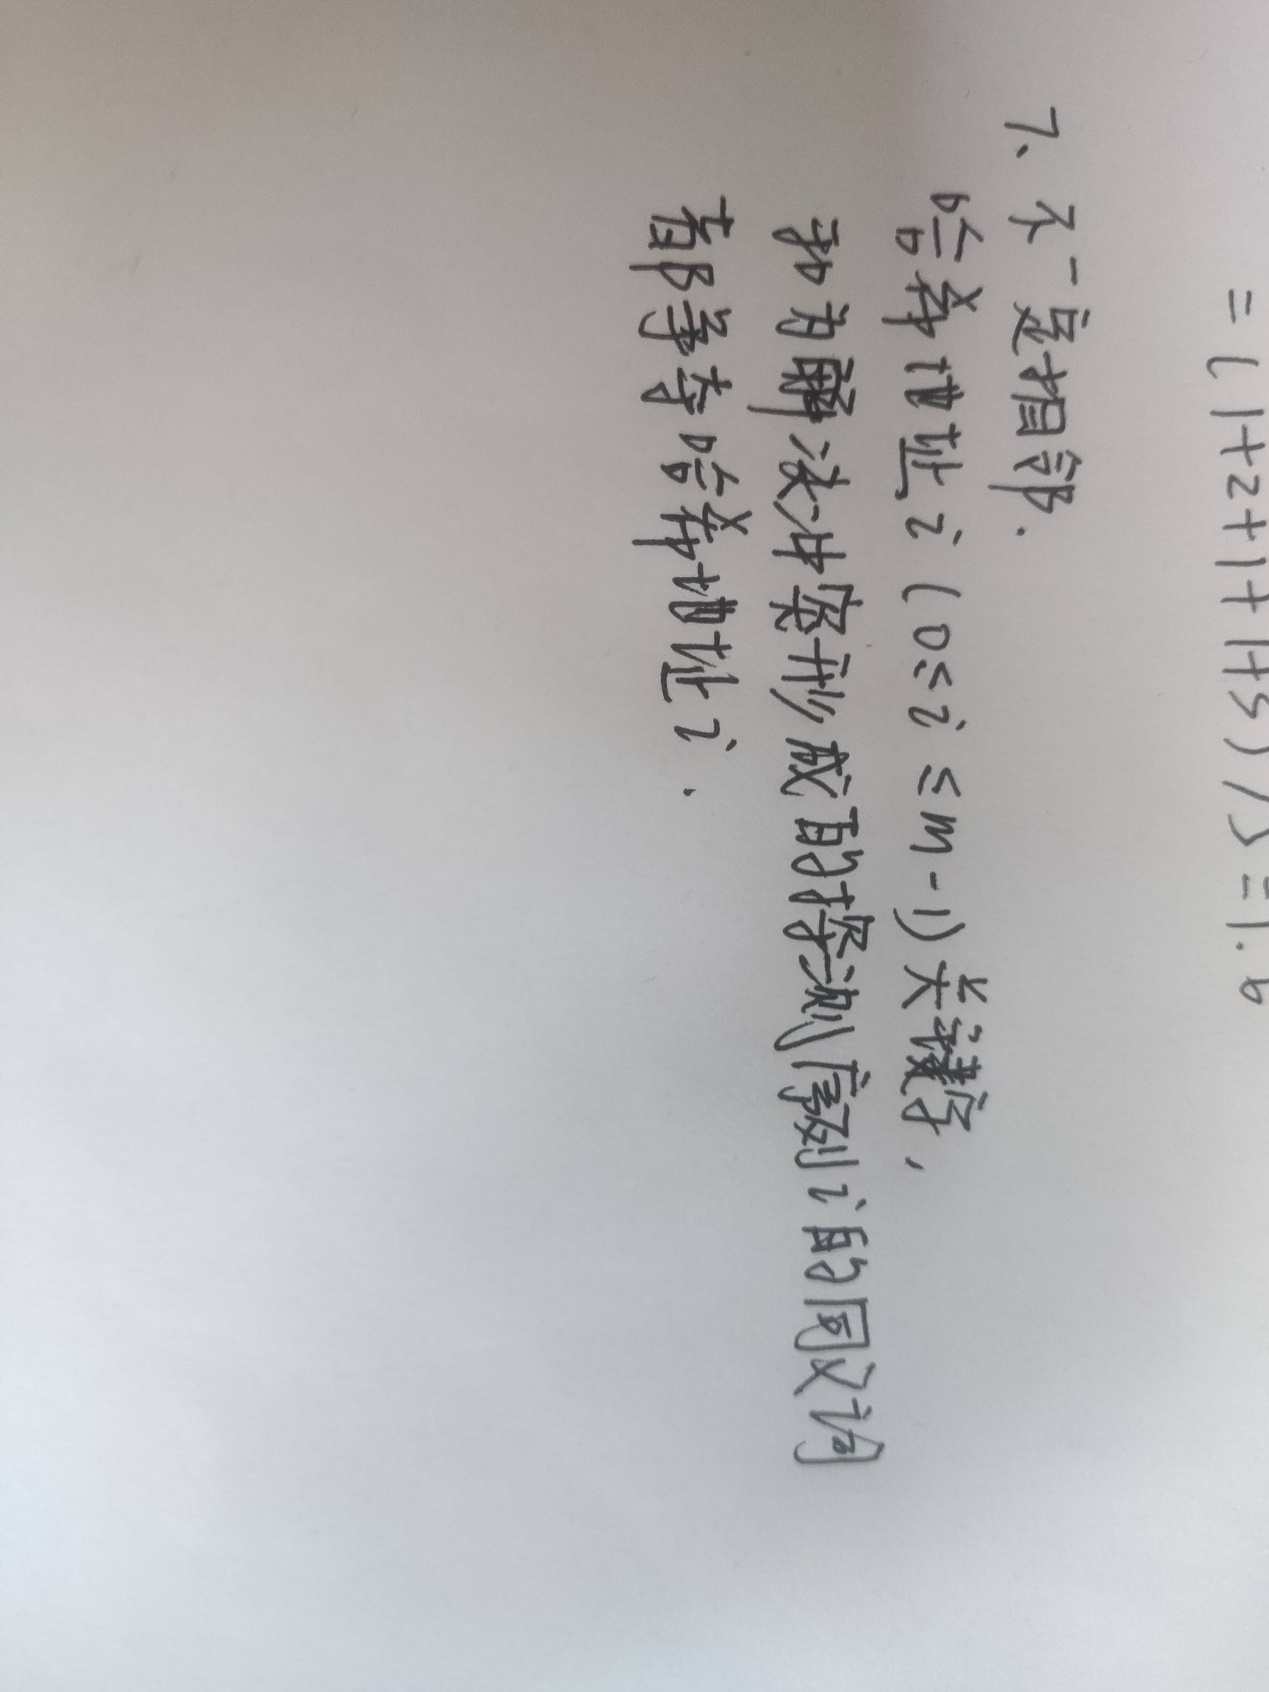 =(1+2+1+1+3)/5=1.6
7、不一定相邻.
哈希地址i(0≤i≤m-1)关键字,
和为解决冲突形成的探测序列i的同义词
都争夺哈希地址i.